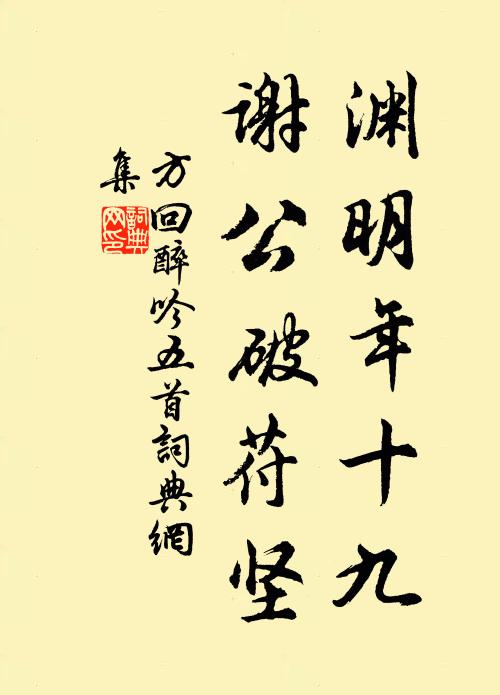 渊明年十九
谢公破苻坚
方回醉吟五首詞典網
集
詞典網印